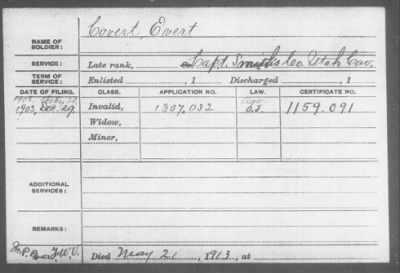 Covert, Evert
NAME OF SOLDIER:
SERVICE: Late rank, Capt. Smith's Co. Utah Cav.
TERM OF SERVICE: Enlisted , 1 Discharged , 1
DATE OF FILING. CLASS. APPLICATION NO. LAW. CERTIFICATE NO.
1903, Dec. 29 Invalid, 1307,032 1159.091
Widow,
Minor,
ADDITIONAL SERVICES:
REMARKS:
Died May 21, 1913, at